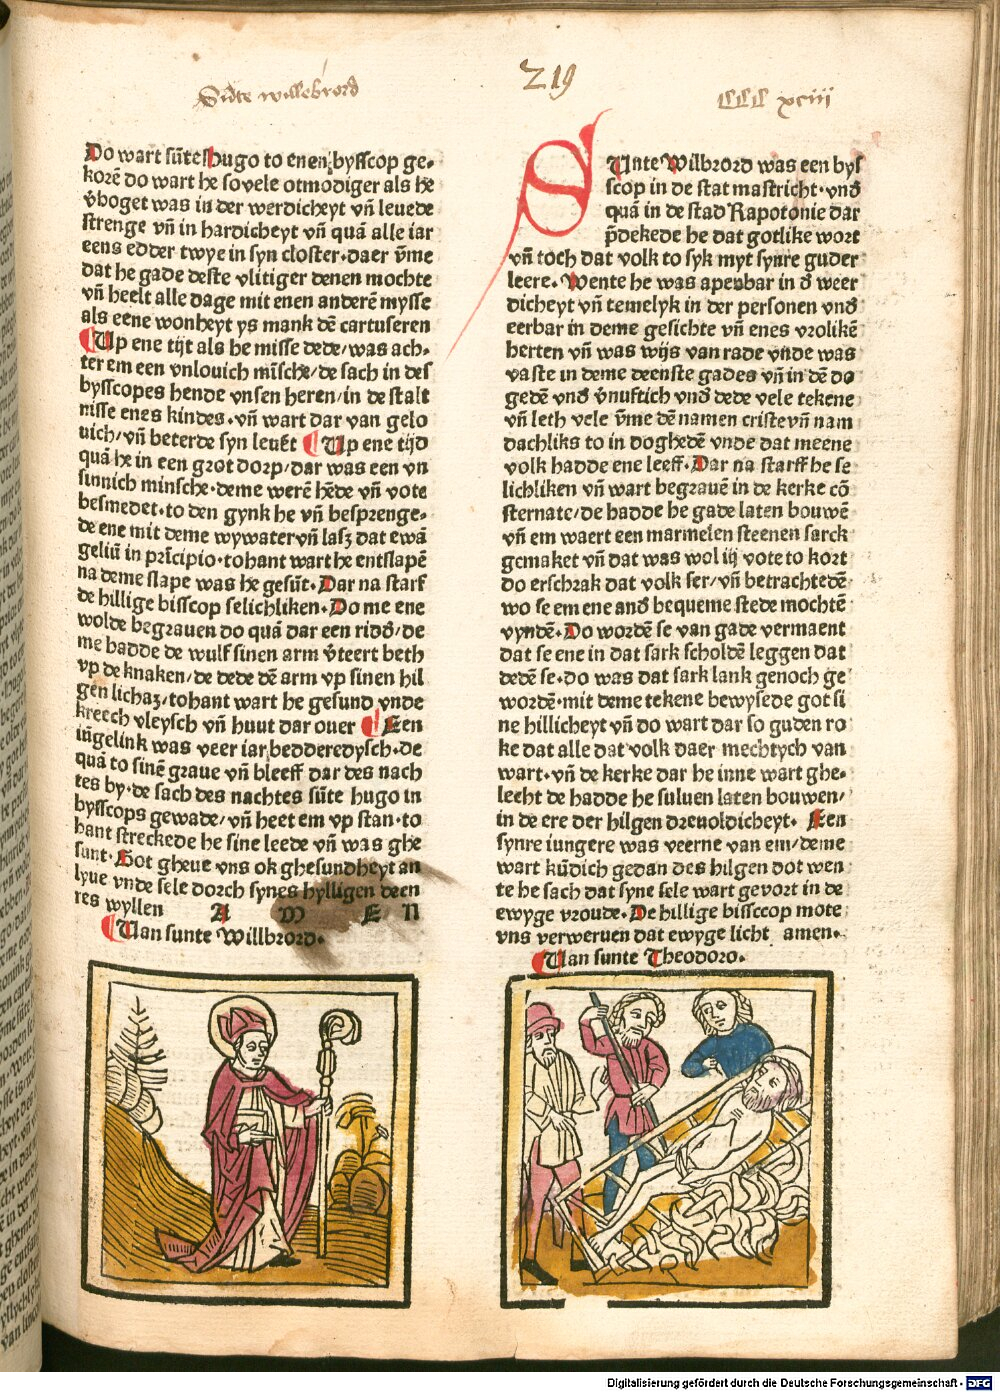 Sūte willebrord
219
CCC xciii
Do wart sūte Hugo to enen bysscop ge⸗
korē do wart he so vele otmodiger als he
v̄hoget was in der werdicheyt vn̄ leuede
strenge vn̄ in hardicheyt vn̄ quā alle iar
eens edder twye in syn closter· daer v̄me
dat he gade deste vlitiger denen mochte
vn̄ heelt alle dage mit enen anderē mysse
als eene wonheyt ys mank dē cartuseren
¶ Up ene tijt als he misse dede/ was ach⸗
ter em een vnlouich mīsche/ de sach in des
bysscopes hende vnsen heren/ in de stalt
nisse enes kindes· vn̄ wart dar van gelo
uich/ vn̄ beterde syn leuēt ¶ Up ene tijd
quā he in een grot dorp/ dar was een vn
sinnich minsche· deme werē hēde vn̄ vote
besmedet· to den gynk he vn̄ besprenge⸗
de ene mit deme wywater vn̄ lasz dat ewā
geliū in prīcipio· tohant wart he entslapē
na deme slape was he gesūt· Dar na starf
de hillige bisscop selichliken· Do me ene
wolde begrauen do quā dar een ridd̄/ de
me hadde de wulf sinen arm v̄teert beth
vp de knaken/ de dede dē arm vp sinen hil
gen lichaz/ tohant wart he gesund vnde
kreech vleysch vn̄ huut dar ouer ¶ Een
iūgelink was veer iar bedderedysch· de
quā to sinē graue vn̄ bleeff dar des nach
tes by· de sach des nachtes sūte hugo in
bysscops gewade/ vn̄ heet em vp stan· to
hant streckede he sine leede vn̄ was ghe
sunt· Got gheue vns ok ghesundheyt an
lyue vnde sele dorch synes hylligen deen
res wyllen A M E N
¶ Uan sunte Willbrord·
SUnte Wilbrord was een bys
scop in de stat mastricht· vnd̄
quā in de stad Rapotonie dar
p̄dekede he dat gotlike wort
vn̄ toch dat volk to syk myt synre guder
leere· Wente he was apenbar in d̄ weer
dicheyt vn̄ temelyk in der personen vnd̄
eerbar in deme gesichte vn̄ enes vrolikē
herten vn̄ was wijs van rade vnde was
vaste in deme deenste gades vn̄ in dē do
gedē vnd̄ v̄nuftich vnd̄ dede vele tekene
vn̄ leth vele v̄me dē namen criste vn̄ nam
dachliks to in doghedē vnde dat meene
volk hadde ene leeff· Dar na starff he se
lichliken vn̄ wart begrauē in de kerke cō
sternate/ de hadde he gade laten bouwē
vn̄ em waert een marmelen steenen sarck
gemaket vn̄ dat was wol iij vote to kort
do erschrak dat volk ser/ vn̄ betrachtedē
wo se em ene and̄ bequeme stede mochtē
vyndē· Do wordē se van gade vermaent
dat se ene in dat sark scholdē leggen dat
dedē se· do was dat sark lank genoch ge
wordē· mit deme tekene bewysede got si
ne hillicheyt vn̄ do wart dar so guden ro
ke dat alle dat volk daer mechtych van
wart· vn̄ de kerke dar he inne wart ghe⸗
lecht de hadde he suluen laten bouwen/
in de ere der hilgen dreuoldicheyt· Een
synre iungere was veerne van em/ deme
wart kūdich gedan des hilgen dot wen
te he sach dat syne sele wart gevort in de
ewyge vroude· De hillige bissccop mote
vns verweruen dat ewyge licht amen·
¶ Uan sunte Theodoro·
Digitalisierung gefördert durch die Deutsche Forschungsgemeinschaft - DFG